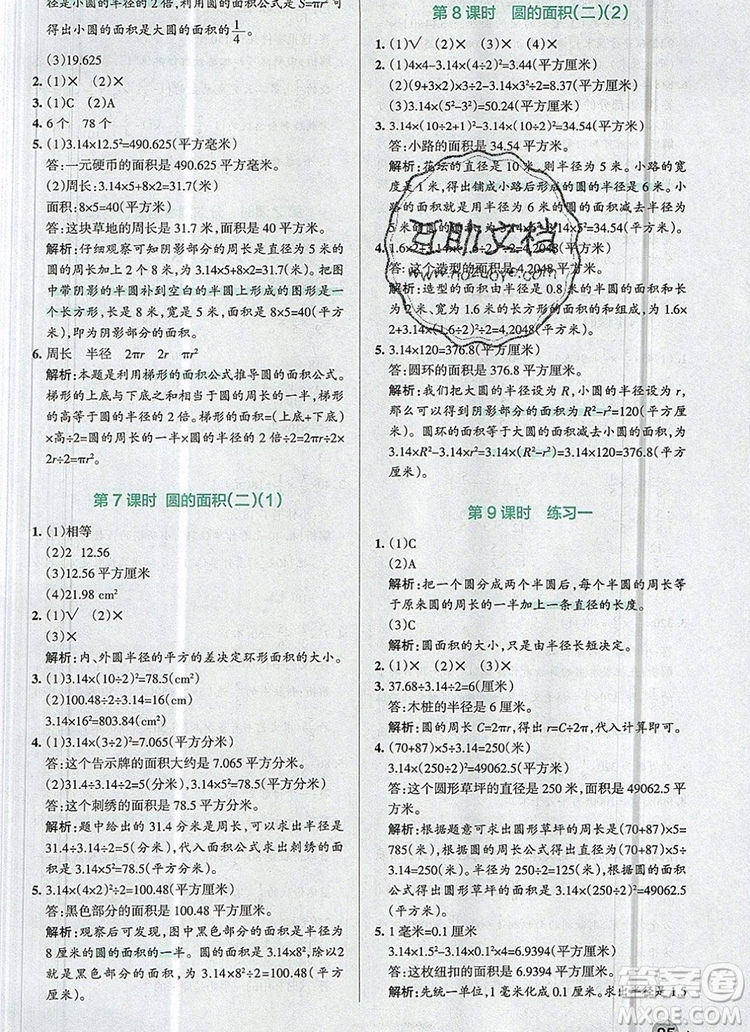 径是小圆的半径的2倍,利用圆的面积公式S=πr²可
求得出小圆的面积是大圆的面积的1/4。
(3)19.625
2. (1)× (2)×
3. (1)C (2)A
4. 6个 78个
5. (1)3.14×12.5²=490.625(平方毫米)
答:一元硬币的面积是490.625平方毫米。
(2)周长:3.14×5+8×2=31.7(米)
面积:8×5=40(平方米)
答:这块草地的周长是31.7米,面积是40平方米。
解析:仔细观察可知阴影部分的周长是直径为5米的
圆的周长加上2个8米,3.14×5+8×2=31.7(米)。把图
中带阴影的半圆补到空白的半圆上形成的图形是一
个长方形,长是8米,宽是5米,面积是8×5=40(平方
米),即为阴影部分的面积。
6. 周长 半径 2πr πr²
解析:本题是利用梯形的面积公式推导圆的面积公式。
梯形的上底与下底之和等于圆的周长的一半,梯形
的高等于圆的半径的2倍。梯形的面积=(上底+下底)
×高÷2=圆的周长的一半×圆的半径的2倍÷2=πr×
2r÷2=πr²。
第7课时 圆的面积(二)(1)
1. (1)相等
(2)2 12.56
(3)12.56平方厘米
(4)21.98 cm²
2. (1)√ (2)×
(3)×
解析:内、外圆半径的平方的差决定环形面积的大小。
3. (1)3.14×(10÷2)²=78.5(cm²)
(2)100.48÷2÷3.14=16(cm)
3.14×16²=803.84(cm²)
4. (1)3.14×(3÷2)²=7.065(平方分米)
答:这个告示牌的面积大约是7.065平方分米。
(2)31.4÷3.14÷2=5(分米) 3.14×5²=78.5(平方分米)
答:这个刺绣的面积是78.5平方分米。
解析:题中给出的31.4分米是周长,可以求出半径是
31.4÷3.14÷2=5(分米),代入公式求出刺绣的面积
是3.14×5²=78.5(平方分米)。
5. 3.14×(4×2)²÷2=100.48(平方厘米)
答:黑色部分的面积是100.48平方厘米。
解析:观察后可发现,图中黑色部分的面积是半径为
8厘米的圆的面积的一半。3.14×8²求出面积,除以2
就是黑色部分的面积,列式为3.14×(4×2)²÷2=
100.48(平方厘米)。
第8课时 圆的面积(二)(2)
1. (1)√ (2)× (3)× (4)×
2. (1)4×4-3.14×2²=3.44(平方厘米)
(2)(9+3×2)×3÷2-3.14×3²÷2=8.37(平方厘米)
(3)3.14×(5²-3²)=50.24(平方厘米)
3. 3.14×(10÷2+1)²-3.14×(10÷2)²=34.54(平方米)
答:小路的面积是34.54平方米。
解析:花坛的直径是10米,则半径为5米。小路的宽
度是1米,得出铺成小路后形成的圆的半径是6米。小
路的面积就是用半径为6米的圆的面积减去半径为
5米的圆的面积。
答:这个造型的面积是4.2048平方米。
答:圆环的面积是376.8平方厘米。
解析:我们把大圆的半径设为R,小圆的半径设为r,那
么就可以得到阴影部分的面积为R²-r²=120(平方厘
米)。圆环的面积等于大圆的面积减去小圆的面积,
即3.14×R²-3.14×r²=3.14×(R²-r²)=3.14×120=
376.8(平方厘米)。
第9课时 练习一
1. (1)C
(2)A
解析:把一个圆分成两个半圆后,每个半圆的周长等
于原来圆的周长的一半加上一条直径的长度。
(3)C
解析:圆面积的大小,只是由半径的长短决定。
2. (1)× (2)× (3)×
3. 37.68÷3.14÷2=6(厘米)
答:木桩的半径是6厘米。
解析:圆的周长C=2πr,得出r=C÷2π,代入计算即可。
4. (70+87)×5÷3.14=250(米)
3.14×(250÷2)²=49062.5(平方米)
答:这个圆形草坪的直径是250米,面积是49062.5
平方米。
解析:根据题意可求圆形草坪的周长是(70+87)×5=
785(米),根据圆的周长公式求出圆形草坪的直径是
785÷3.14=250(米),半径是250÷2,根据圆的面积公
式求出圆形草坪的面积是3.14×(250÷2)²=49062.5
(平方米)。
5. 1毫米=0.1厘米
3.14×1.5²-3.14×0.1²×4=6.9394(平方厘米)
答:这枚纽扣的面积是6.9394平方厘米。
解析:先统一单位,1毫米化成0.1厘米。求出半径1.5
互助文档